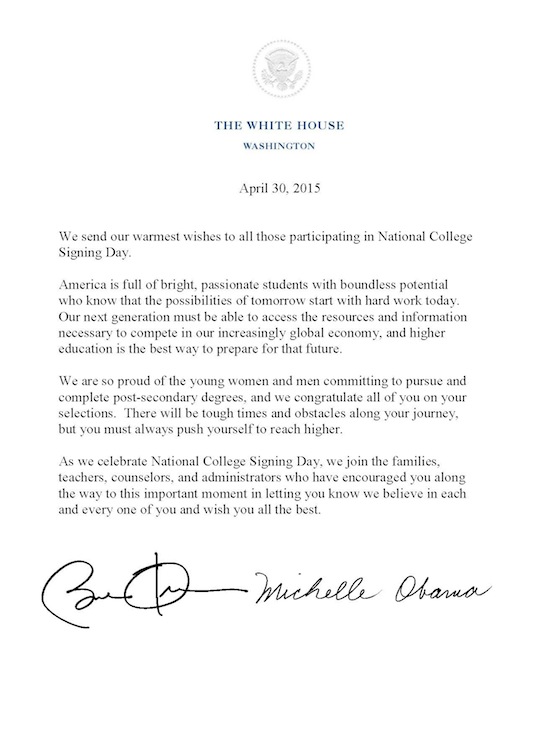 THE WHITE HOUSE
WASHINGTON
April 30, 2015
We send our warmest wishes to all those participating in National College
Signing Day.
America is full of bright, passionate students with boundless potential
who know that the possibilities of tomorrow start with hard work today.
Our next generation must be able to access the resources and information
necessary to compete in our increasingly global economy, and higher
education is the best way to prepare for that future.
We are so proud of the young women and men committing to pursue and
complete post-secondary degrees, and we congratulate all of you on your
selections.  There will be tough times and obstacles along your journey,
but you must always push yourself to reach higher.
As we celebrate National College Signing Day, we join the families,
teachers, counselors, and administrators who have encouraged you along
the way to this important moment in letting you know we believe in each
and every one of you and wish you all the best.
Michelle Obama